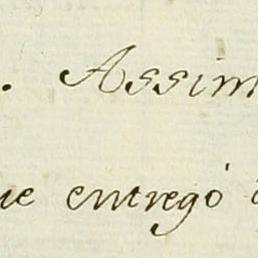 . Assim
ue entregó